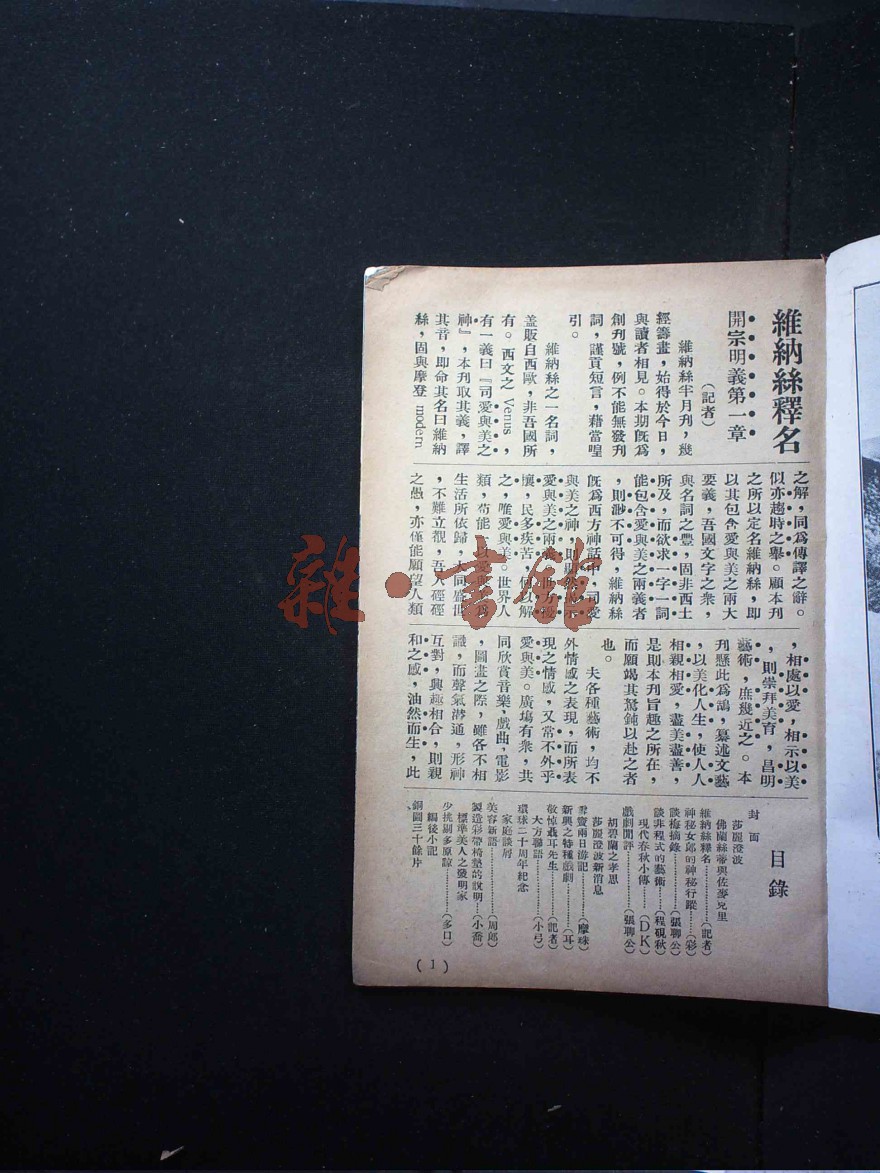 維納絲釋名
開宗明義第一章
(記者)
維納絲半月刋,幾
經籌畫,始得於今日,
與讀者相見。本期旣爲
創刋號,例不能無發刋
詞,謹貢短言,藉當喤
引。
維納絲之一名詞,
蓋販自西歐,非吾國所
有。西文之 Venus ,
有一義曰『司愛與美之
神』,本刋取其義,譯
其音,即命其名曰維納
絲,固與摩登 modern
之解,同爲傳譯之辭。
似亦趨時之舉。顧本刋
之所以定名維納絲,即
以其包含愛與美之兩大
要義,吾國文字之衆,
與名詞之豐,固非西土
所及,而欲求一字一詞
能包含愛與美之兩義者
,則渺不可得,維納絲
旣爲西方神話中,司愛
與美之神,則顯然
愛與美之兩義,世方
,民多疾苦,何以解
之,唯愛與美。世界人
類,苟能以愛與美爲
生活所依歸,大同盛世
,不難立覩,吾人硜硜
之愚,亦僅能願望人類
,相處以愛,相示以美
,則崇拜美育,昌明
藝術,庶幾近之。本
刋懸此爲鵠,纂述文藝
,以美化人生,使人人
相親相愛,盡美盡善,
是則本刋旨趣之所在,
而願竭其駑鈍以赴之者
也。
夫各種藝術,均不
外情感之表現,而所表
現之情感,又常不外乎
愛與美。廣塲有衆,共
同欣賞音樂,戲曲,電影
,圖畫之際,雖各不相
識,而聲氣滲通,形神
互對,興趣相合,則親
和之感,油然而生,此
目錄
封面
莎麗澄波
佛蘭絲蒂與佐麥克里
維納絲釋名………(記者)
神秘女郎的神秘行蹤……(彩)
談梅摘錄………(張聊公)
談非程式的藝術……(程硯秋)
現代春秋小傳………(DK)
戲劇閒評………(張聊公)
胡碧蘭之孝思
莎麗澄波新消息
雪竇兩日游記……(摩珠)
新興之特種戲劇……(耳)
敬悼聶耳先生……(記者)
大方聯語……(小弓)
環球二十周年紀念
家庭談屑
美容新語………(周郎)
製造彩帶椅墊的說明…(小喬)
標準美人之發明家
少挑剔多原諒………(多口)
編後小記
銅圖三十餘片
(1)
雜·書館